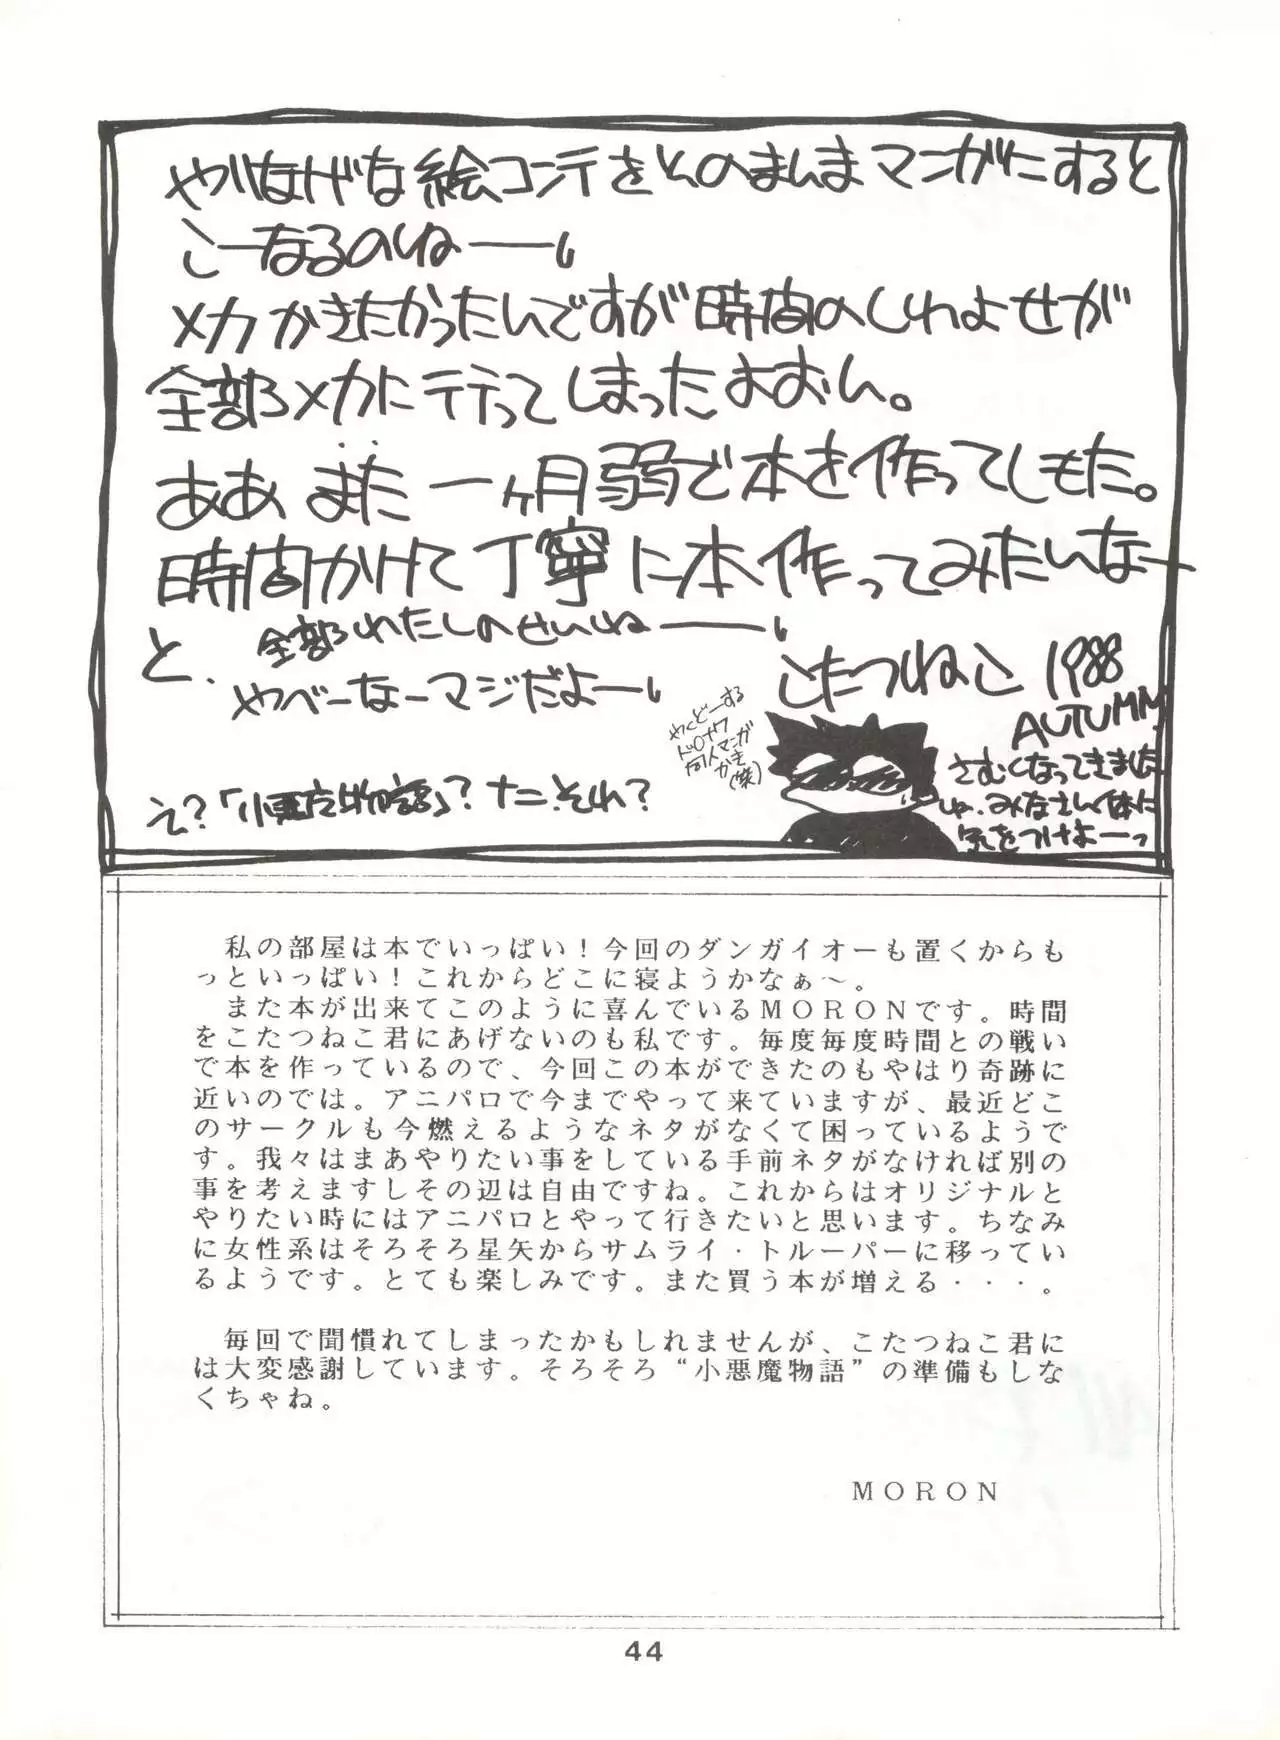 やりなげな絵コンテをそのまんまマンガにすると
こーなるのしねーー、
メカかきたかったんですが時間のしわよせが
全部メカに行ってしまったよおん。
ああ、また一ヶ月弱で本を作ってしもた。
時間かけて丁寧に本作ってみたいなー
と、全部わたしのせいしねーー、
やべーなーマジだよー、
え?「小悪魔物語」?ナニそれ?
こたつねこ 1988
AUTUMN
さむくなってきました
しゅ、みなさん体に
気をつけよーっ
同人マンガ
かき
(笑)
私の部屋は本でいっぱい!今回のダンガイオーも置くからも
っといっぱい!これからどこに寝ようかなぁ〜。
また本が出来てこのように喜んでいるMORONです。時間
をこたつねこ君にあげないのも私です。毎度毎度時間との戦い
で本を作っているので、今回この本ができたのもやはり奇跡に
近いのでは。アニパロで今までやって来ていますが、最近どこ
のサークルも今燃えるようなネタがなくて困っているようで
す。我々はまあやりたい事をしている手前ネタがなければ別の
事を考えますしその辺は自由ですね。これからはオリジナルと
やりたい時にはアニパロとやって行きたいと思います。ちなみ
に女性系はそろそろ星矢からサムライ・トルーパーに移ってい
るようです。とても楽しみです。また買う本が増える・・・。
毎回で聞慣れてしまったかもしれませんが、こたつねこ君に
は大変感謝しています。そろそろ“小悪魔物語”の準備もしな
くちゃね。
MORON
44